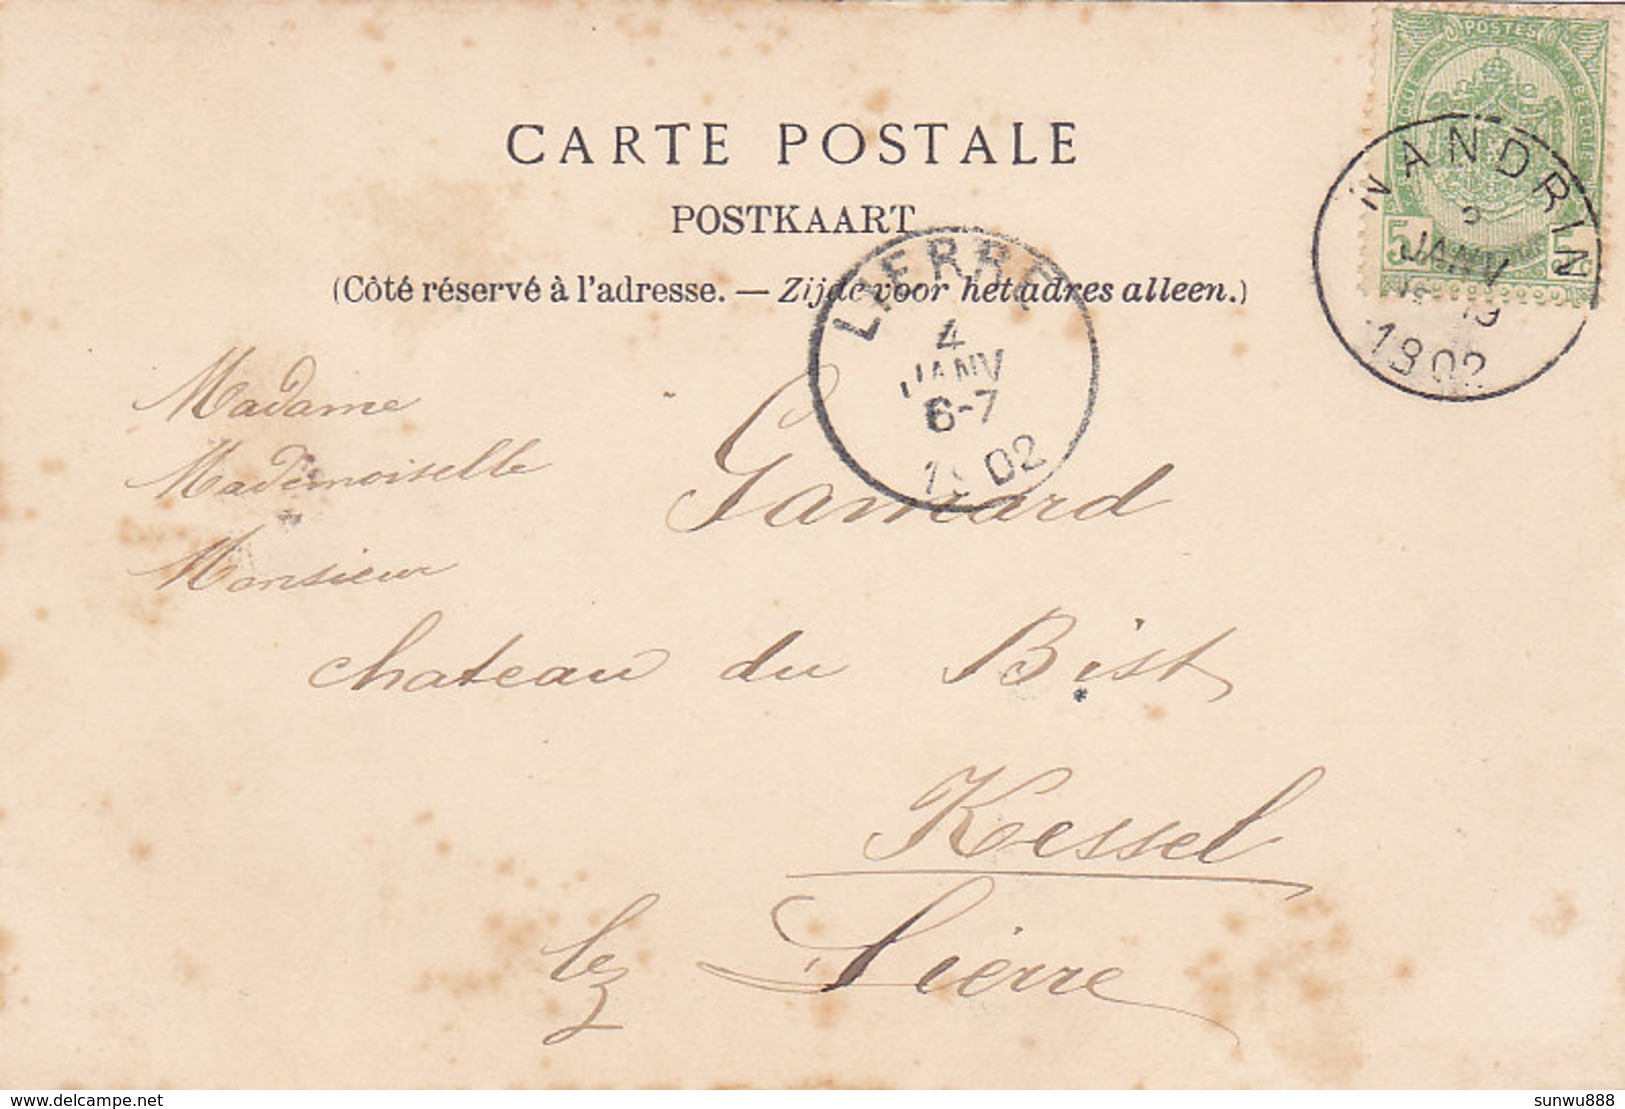 POSTES
BELGIQUE
5 5c
NANDRIN
JANV
19
1902
CARTE POSTALE
POSTKAART
(Côté réservé à l'adresse. — Zijde voor het adres alleen.)
LIERRE
4
JANV
6-7
1902
Madame
Mademoiselle
Monsieur
Gamard
chateau du Bist
Kessel
lez Lierre
delcampe.net
sunwu888